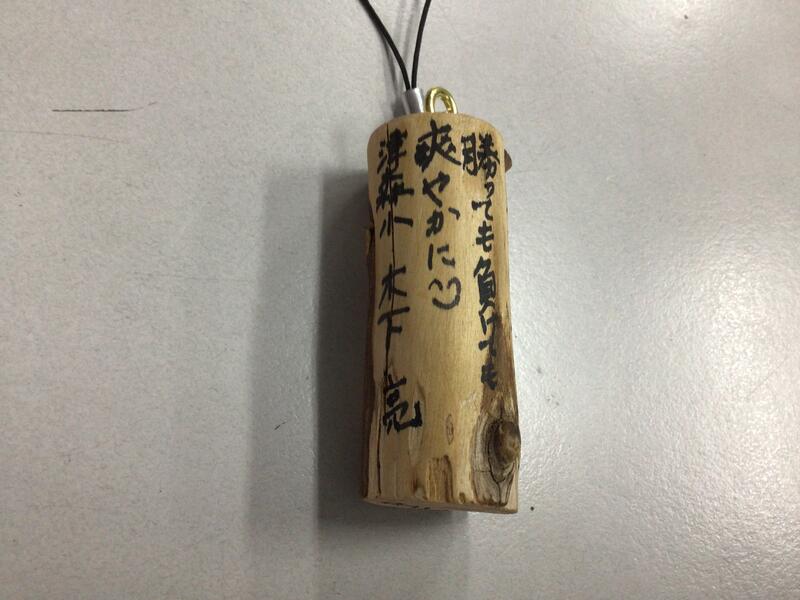 勝っても負けても
爽やかに
津森小 木下 亮